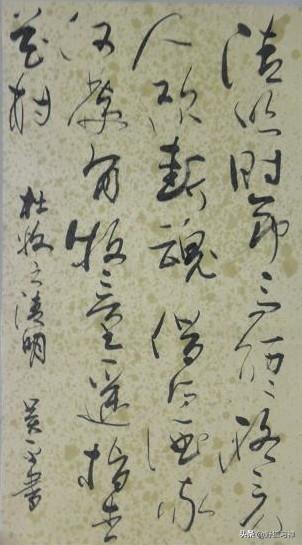 清明时节雨纷纷路上行
人欲断魂借问酒家
何處有牧童遥指杏
花村
杜牧之清明 書
头条